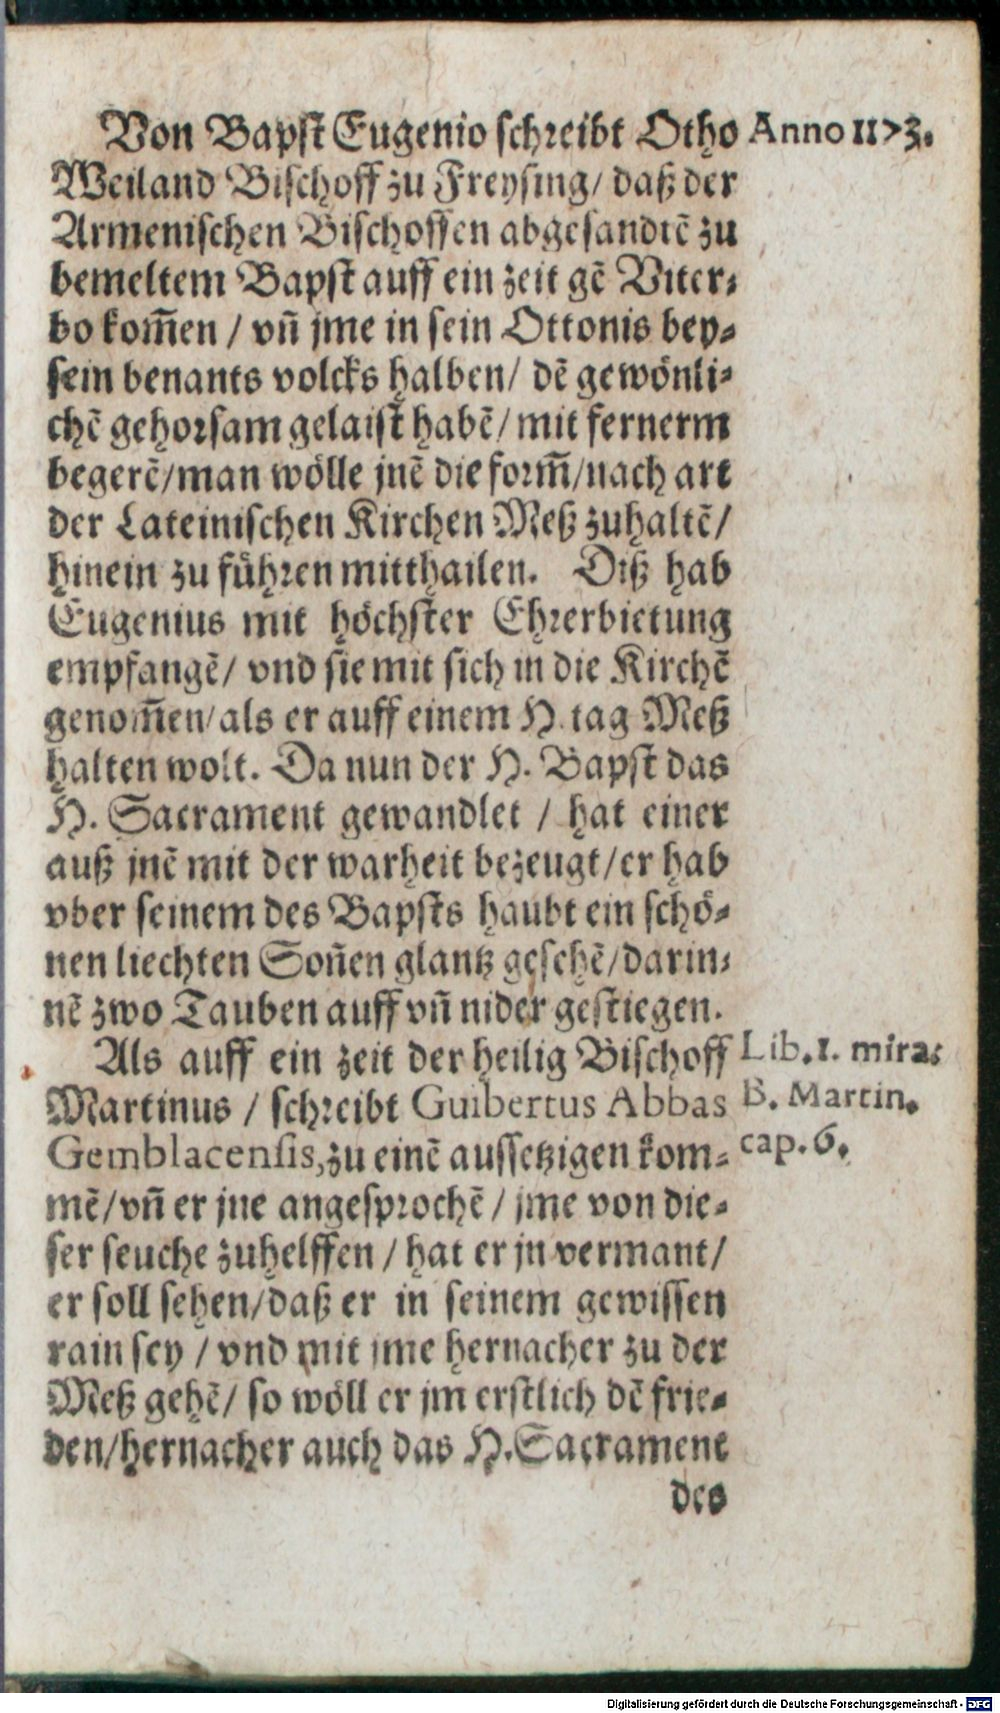 Von Bapst Eugenio schreibt Otho Anno 1173.
Weiland Bischoff zu Freysing/ daß der
Armenischen Bischoffen abgesandtẽ zu
bemeltem Bapst auff ein zeit gẽ Viter-
bo kom̃en / vñ jme in sein Ottonis bey-
sein benants volcks halben/ dẽ gewönli-
chẽ gehorsam gelaist habẽ/ mit fernerm
begerẽ/man wölle jnẽ die form̃/nach art
der Lateinischen Kirchen Meß zuhaltẽ/
hinein zu führen mitthailen. Diß hab
Eugenius mit höchster Ehrerbietung
empfangẽ/ vnd sie mit sich in die Kirchẽ
genom̃en/als er auff einem H. tag Meß
halten wolt. Da nun der H. Bapst das
H. Sacrament gewandlet / hat einer
auß jnẽ mit der warheit bezeugt/er hab
vber seinem des Bapsts haubt ein schö-
nen liechten Soñen glantz gesehẽ/darin-
nẽ zwo Tauben auff vñ nider gestiegen.
Als auff ein zeit der heilig Bischoff Lib. 1. mira:
Martinus / schreibt Guibertus Abbas B. Martin.
Gemblacensis, zu einẽ aussetzigen kom- cap. 6.
mẽ/vñ er jne angesprochẽ / jme von die-
ser seuche zuhelffen / hat er jn vermant/
er soll sehen/daß er in seinem gewissen
rain sey / vnd mit jme hernacher zu der
Meß gehẽ/ so wöll er jm erstlich dẽ frie-
den/hernacher auch das H. Sacrament
des
Digitalisierung gefördert durch die Deutsche Forschungsgemeinschaft - DFG